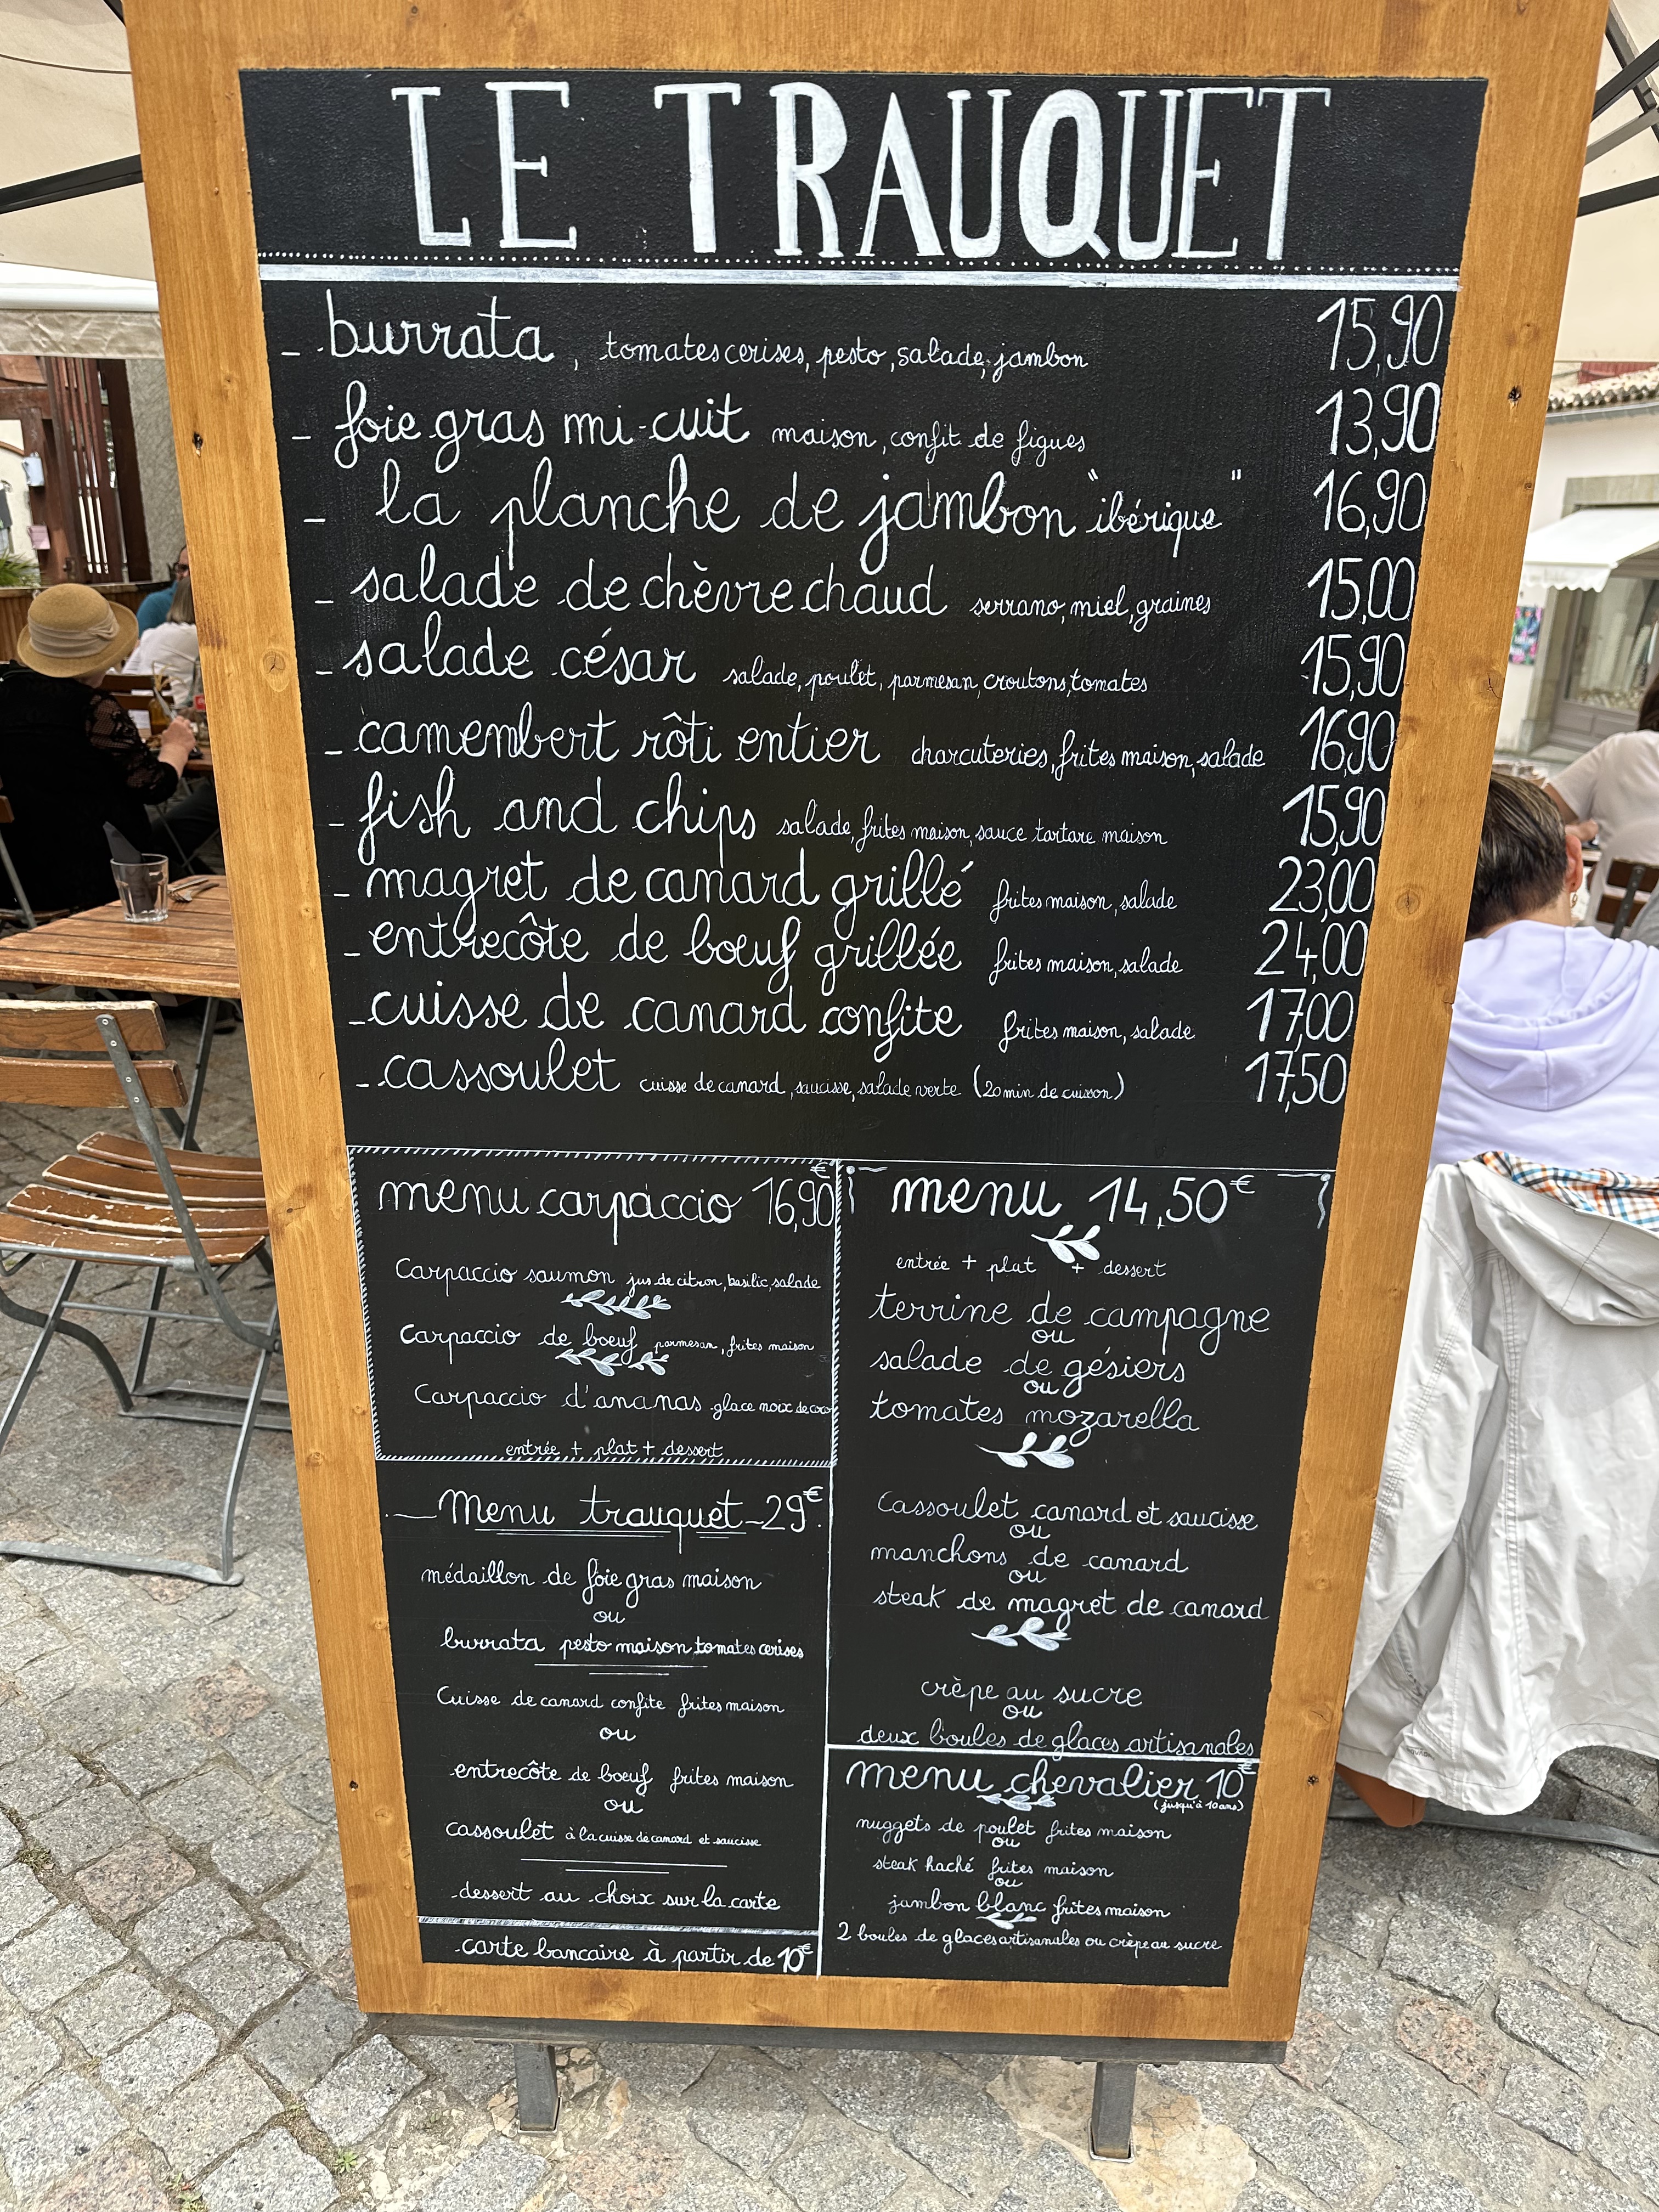 LE TRAUQUET
- burrata, tomates cerises, pesto, salade, jambon 15,90
- foie gras mi-cuit maison, confit de figues 13,90
- la planche de jambon "ibérique" 16,90
- salade de chèvre chaud serrano, miel, graines 15,00
- salade césar salade, poulet, parmesan, croutons, tomates 15,90
- camembert rôti entier charcuteries, frites maison, salade 16,90
- fish and chips salade, frites maison, sauce tartare maison 15,90
- magret de canard grillé frites maison, salade 23,00
- entrecôte de bœuf grillée frites maison, salade 24,00
- cuisse de canard confite frites maison, salade 17,00
- cassoulet cuisse de canard, saucisse, salade verte (20 min de cuisson) 17,50
menu carpaccio 16,90€
Carpaccio saumon jus de citron, basilic, salade
Carpaccio de boeuf parmesan, frites maison
Carpaccio d'ananas glace noix de coco
entrée + plat + dessert
Menu trauquet - 29€
médaillon de foie gras maison
ou
burrata pesto maison tomates cerises
Cuisse de canard confite frites maison
ou
entrecôte de boeuf frites maison
ou
cassoulet à la cuisse de canard et saucisse
dessert au choix sur la carte
carte bancaire à partir de 10€
menu 14,50€
entrée + plat + dessert
terrine de campagne
ou
salade de gésiers
ou
tomates mozarella
Cassoulet canard et saucisse
ou
manchons de canard
ou
steak de magret de canard
crèpe au sucre
ou
deux boules de glaces artisanales
menu chevalier 10€
(jusqu'à 10 ans)
nuggets de poulet frites maison
ou
steak haché frites maison
ou
jambon blanc frites maison
2 boules de glaces artisanales ou crèpe au sucre